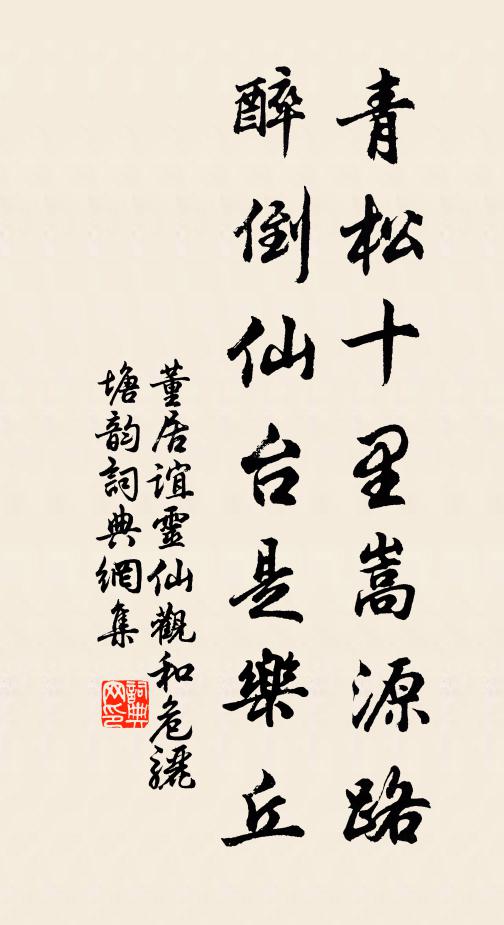 青松十里嵩源路
醉倒仙台是樂丘
董居誼靈仙觀和危驪
塘韵詞典網集
詞典網印